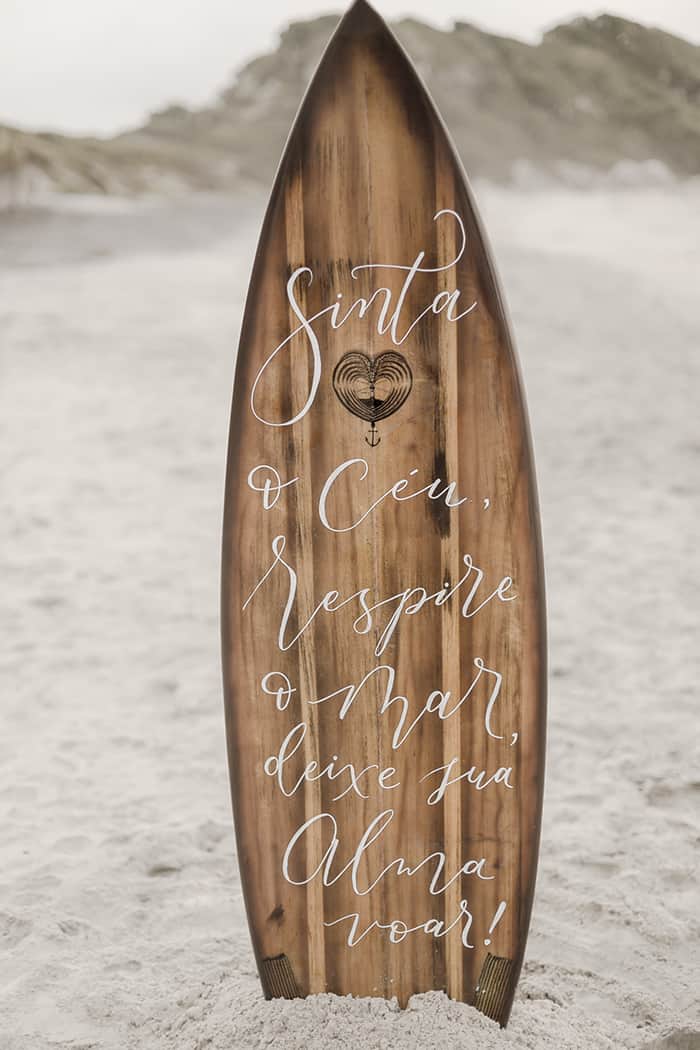 Sinta
o Céu,
respire
o mar,
deixe sua
Alma
voar!